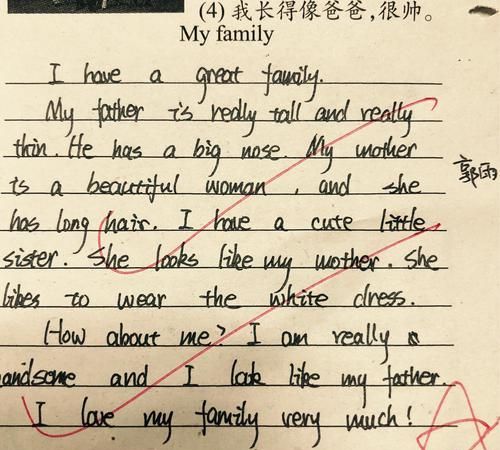 (4) 我长得像爸爸,很帅。
My family
I have a great family.
My father is really tall and really
thin. He has a big nose. My mother
is a beautiful woman , and she
has long hair. I have a cute little
sister. She looks like my mother. She
likes to wear the white dress.
How about me? I am really
andsome and I look like my father.
I love my family very much!